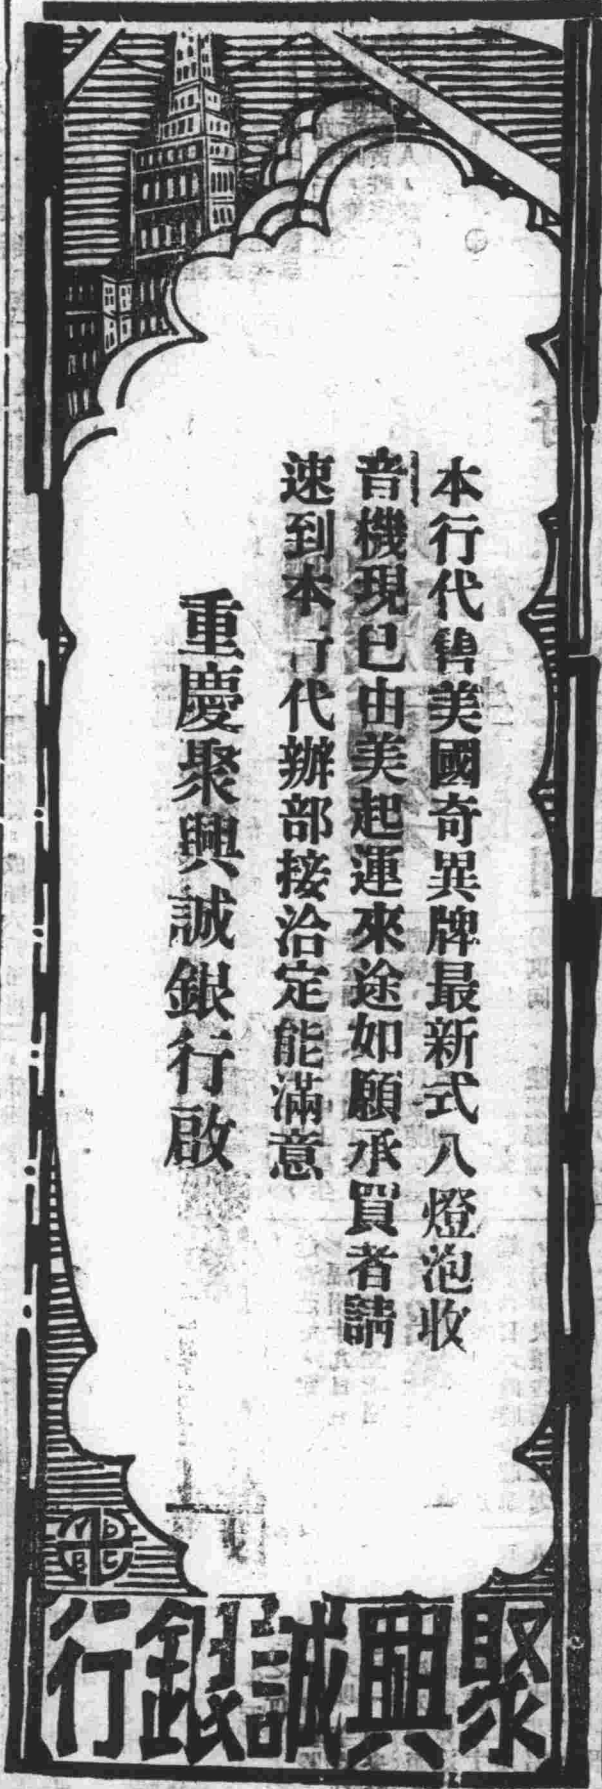 本行代售美國奇異牌最新式八燈泡收
音機現已由美起運來途如願承買者請
速到本行代辦部接洽定能滿意
重慶聚興誠銀行啟
YDBC
聚興誠銀行